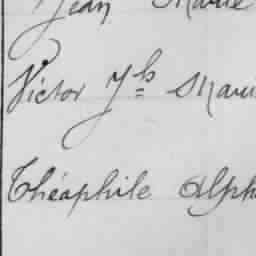 Jean Marie
Victor Jh Mari
Théophile Alph